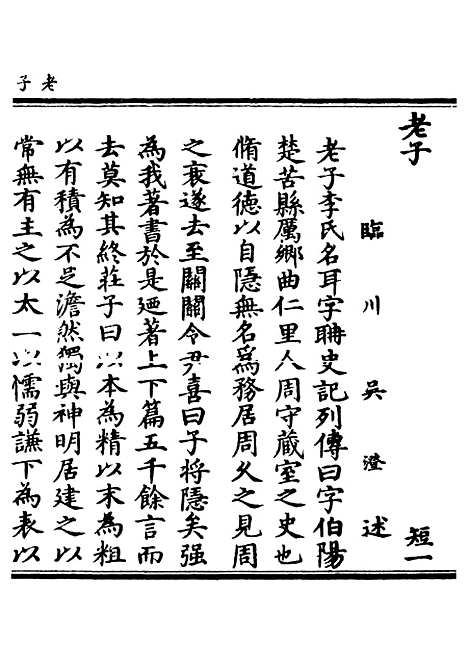 老子
老子 短一
臨川吳澄述
老子李氏名耳字聃史記列傳曰字伯陽
楚苦縣厲鄉曲仁里人周守藏室之史也
脩道德以自隱無名為務居周乆之見周
之衰遂去至關關令尹喜曰子将隱矣强
為我著書於是廼著上下篇五千餘言而
去莫知其終莊子曰以本為精以末為粗
以有積為不足澹然獨與神明居建之以
常無有主之以太一以懦弱謙下為表以